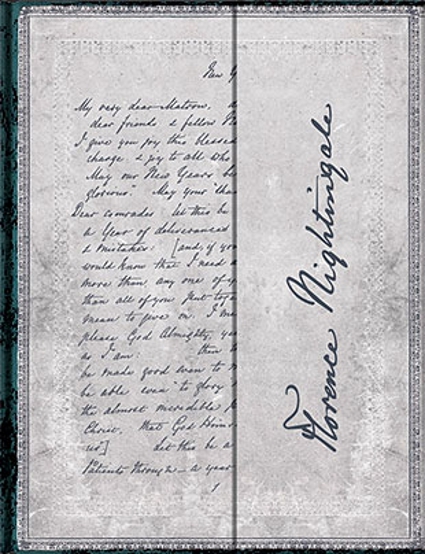 New Y
My very dear Matron, d
dear friends & fellow N
I give you joy this blessed
charge, & joy to all who
May our New Years be
glorious." May your 'Chan
Dear comrades let this be
a Year of deliverances
& mistakes: [and, if you
would know that I need a
more than, any one of y
than all of you put toge
mean to give on. I me
please God Almighty, ye
as I am. then
be made good even to
be able even "to glory
the almost incredible
Christ, that God Himse
us"] Let this be a
Patients through — a year
1
Florence Nightingale